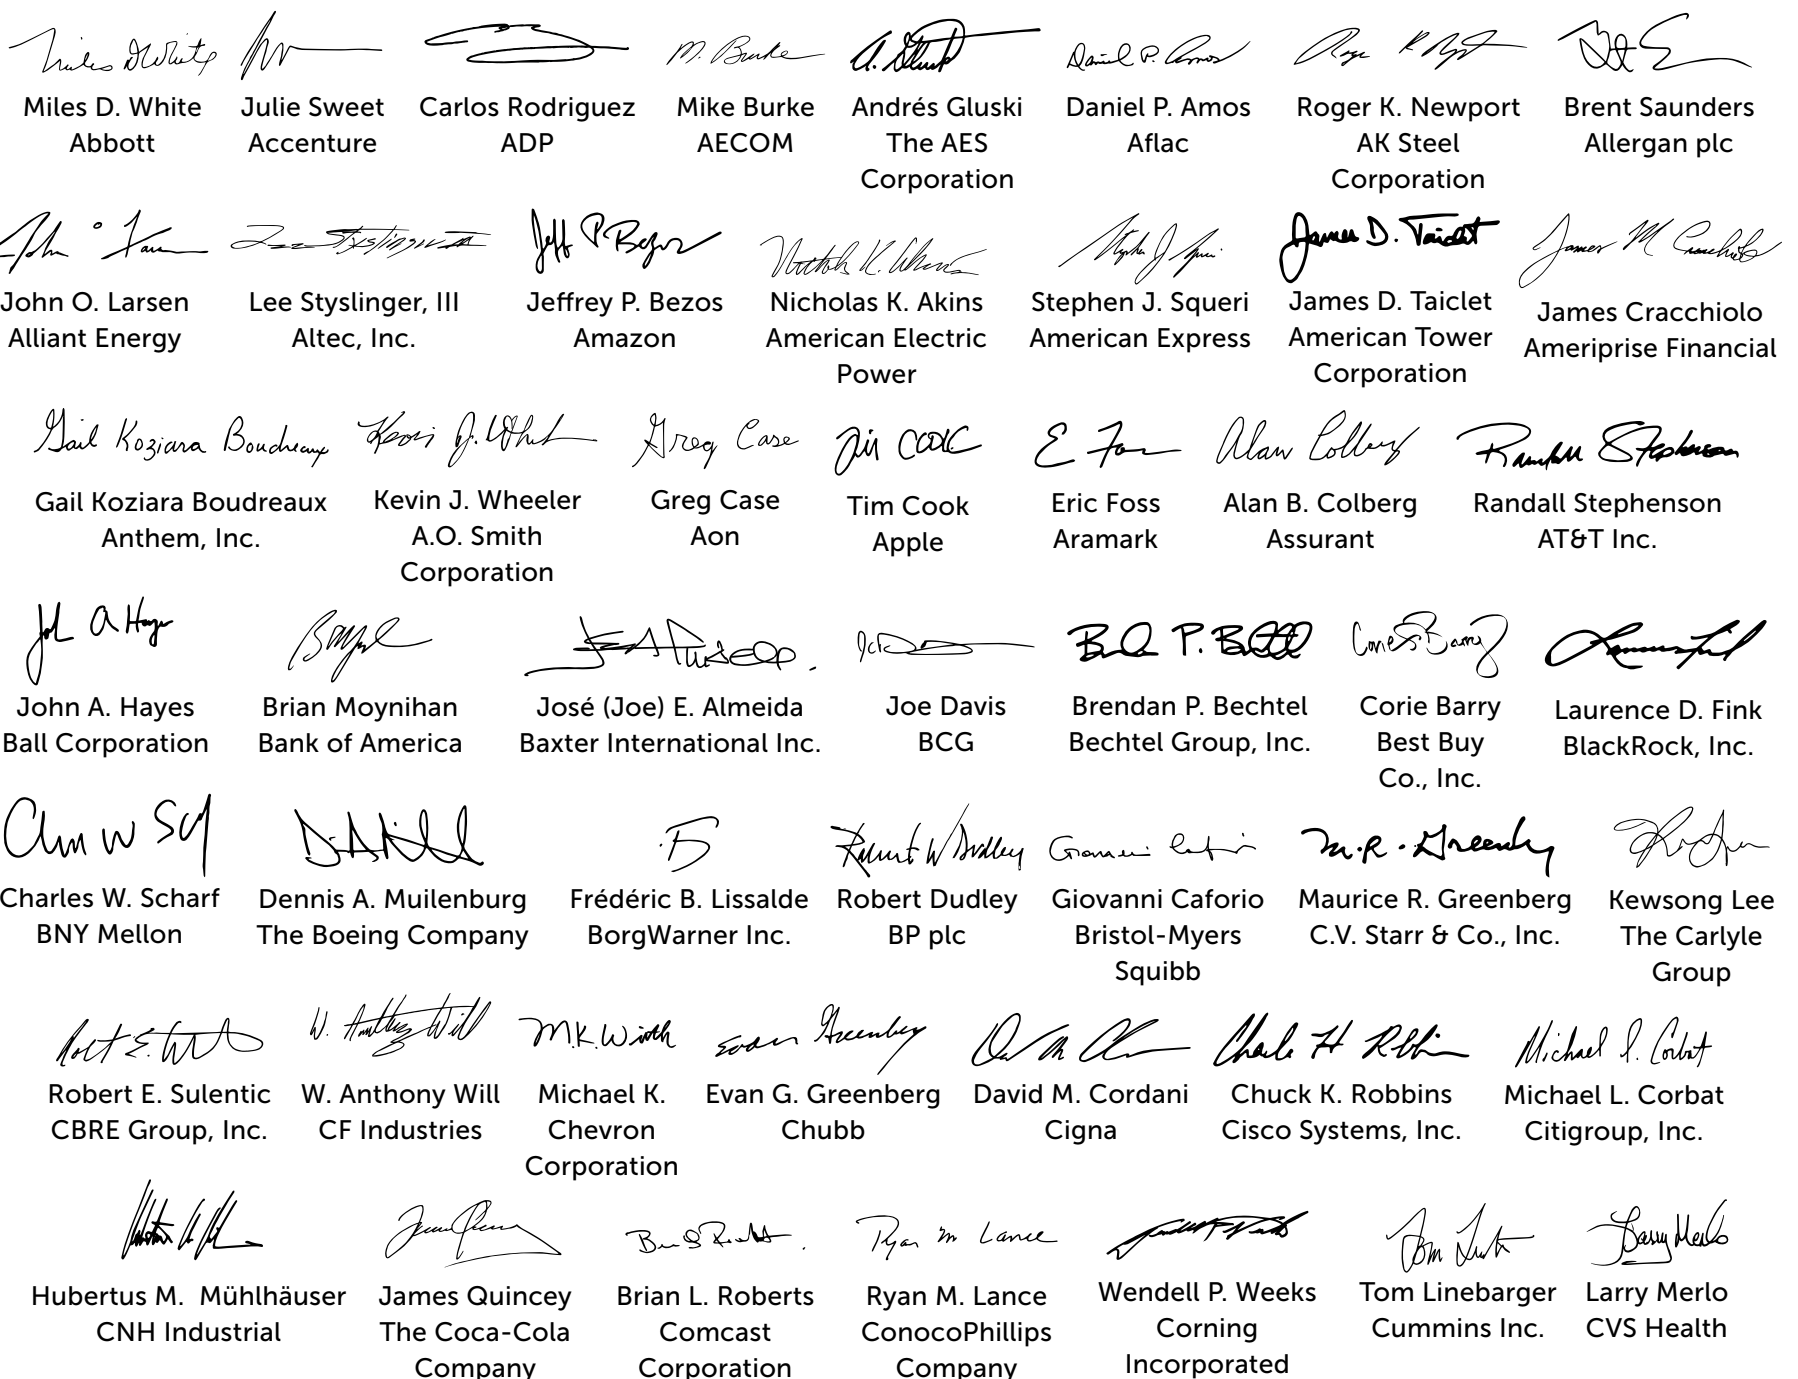 Miles D. White
Abbott
Julie Sweet
Accenture
Carlos Rodriguez
ADP
M. Burke
Mike Burke
AECOM
Andrés Gluski
The AES
Corporation
Daniel P. Amos
Daniel P. Amos
Aflac
Roger K. Newport
AK Steel
Corporation
Brent Saunders
Allergan plc
John O. Larsen
Alliant Energy
Lee Styslinger, III
Altec, Inc.
Jeff P Bezos
Jeffrey P. Bezos
Amazon
Nicholas K. Akins
American Electric
Power
Stephen J. Squeri
American Express
James D. Taiclet
James D. Taiclet
American Tower
Corporation
James M Cracchiolo
James Cracchiolo
Ameriprise Financial
Gail Koziara Boudreaux
Gail Koziara Boudreaux
Anthem, Inc.
Kevin J. Wheeler
A.O. Smith
Corporation
Greg Case
Greg Case
Aon
Tim Cook
Tim Cook
Apple
Eric Foss
Aramark
Alan Colberg
Alan B. Colberg
Assurant
Randall Stephenson
Randall Stephenson
AT&T Inc.
John A Hayes
John A. Hayes
Ball Corporation
Brian Moynihan
Bank of America
José (Joe) E. Almeida
Baxter International Inc.
Joe Davis
BCG
Brendan P. Bechtel
Bechtel Group, Inc.
Corie S Barry
Corie Barry
Best Buy
Co., Inc.
Laurence D. Fink
BlackRock, Inc.
Charles W. Scharf
BNY Mellon
Dennis A. Muilenburg
The Boeing Company
Frédéric B. Lissalde
BorgWarner Inc.
Robert W Dudley
Robert Dudley
BP plc
Giovanni Caforio
Bristol-Myers
Squibb
M.R. Greenberg
Maurice R. Greenberg
C.V. Starr & Co., Inc.
Kewsong Lee
The Carlyle
Group
Robert E. Sulentic
CBRE Group, Inc.
W. Anthony Will
W. Anthony Will
CF Industries
M.K. Wirth
Michael K.
Chevron
Corporation
Evan Greenberg
Evan G. Greenberg
Chubb
David M. Cordani
Cigna
Charles H Robbins
Chuck K. Robbins
Cisco Systems, Inc.
Michael L. Corbat
Michael L. Corbat
Citigroup, Inc.
Hubertus M. Mühlhäuser
CNH Industrial
James Quincey
The Coca-Cola
Company
Brian L. Roberts
Comcast
Corporation
Ryan M Lance
Ryan M. Lance
ConocoPhillips
Company
Wendell P. Weeks
Corning
Incorporated
Tom Linebarger
Cummins Inc.
Larry Merlo
Larry Merlo
CVS Health